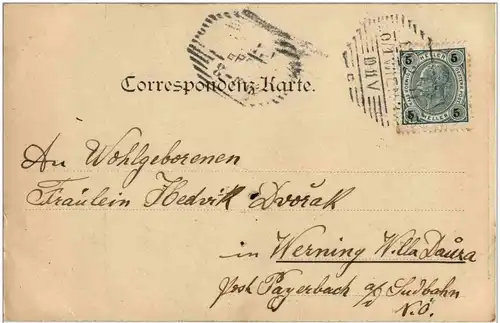 5 5
HELLER HELLER
5 5
Correspondenz-Karte.
An Wohlgeborenen
Fräulein Hedvik Dvořak
in Werning Villa
post Payerbach a/d Südbahn
N.Ö.